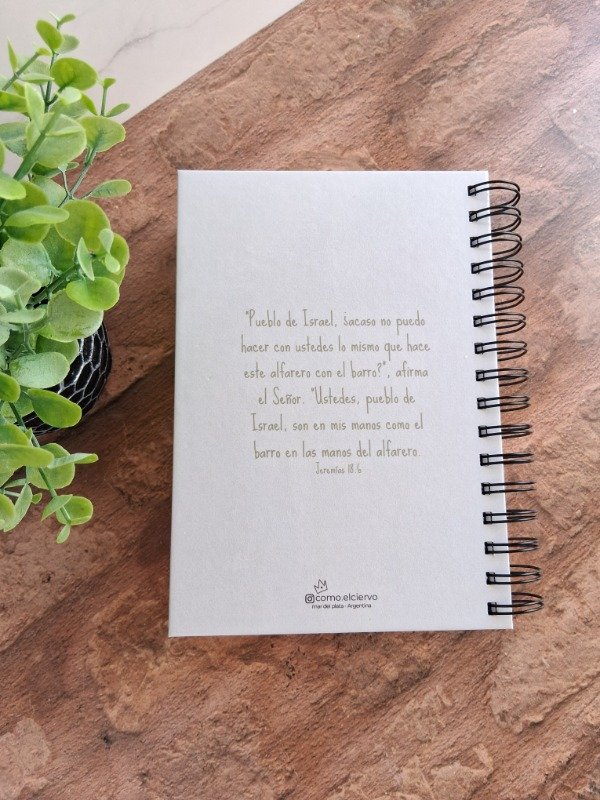 "Pueblo de Israel, ¿acaso no puedo
hacer con ustedes lo mismo que hace
este alfarero con el barro?", afirma
el Señor. "Ustedes, pueblo de
Israel, son en mis manos como el
barro en las manos del alfarero.
Jeremías 18:6
@como.elciervo
mar del plata - Argentina